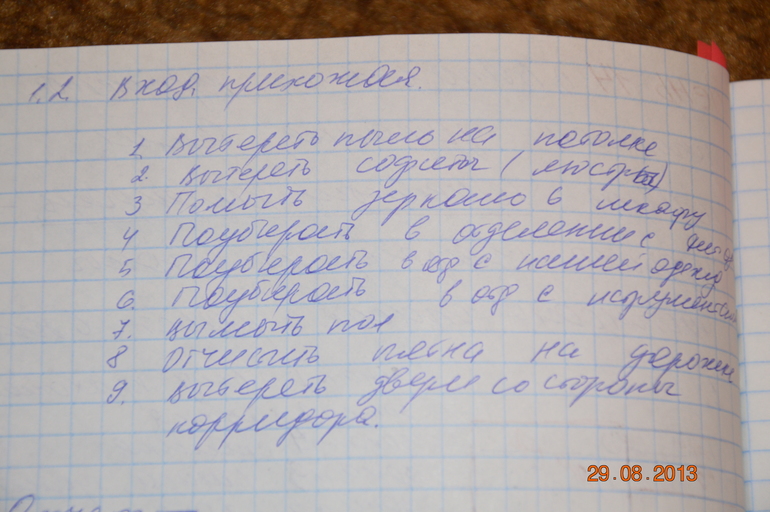 1.2. Вход, прихожая.
1. Вытереть пыль на потолке
2. Вытереть софиты (люстры)
3 Помыть зеркало в шкафу
4 Поубирать в отделении с
5 Поубирать в отд с нашей одежд
6. Поубирать в отд с иструментами
7. вымыть пол
8 отчисть пятна на дорожке
9. вытереть двери со стороны
корридора.
29.08.2013